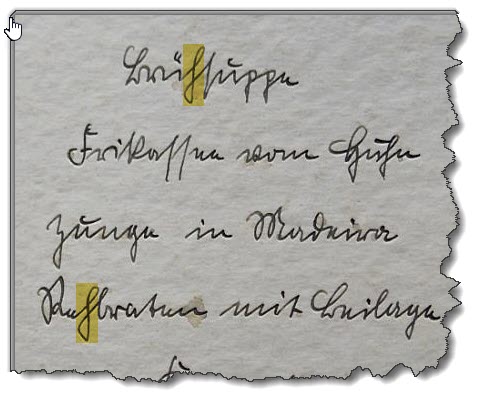 Brühsuppe
Frikassee vom Huhn
Zunge in Madeira
Rehbraten mit Beilage